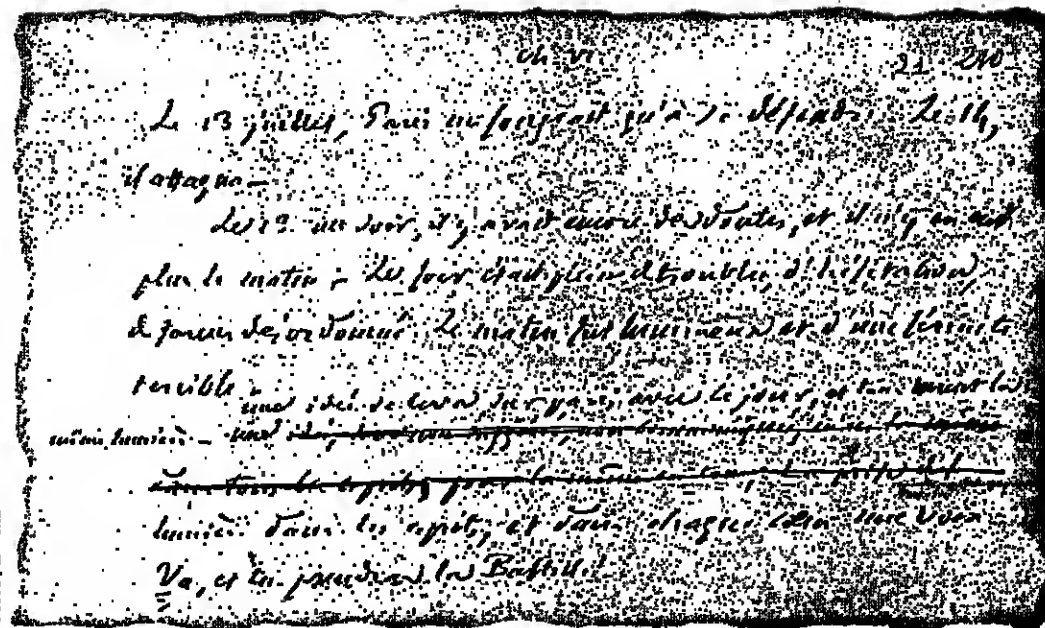 ch VI.
Le 13 juillet, Paris ne songeait qu'à se défendre. Le 14,
il attaqua —
Le 13 au soir, il y avait encore des doutes, et il n'y en eut
plus le matin. Le soir était plein de troubles, d'hésitation,
de fureur désordonné. Le matin fut lumineux et d'une sérénité
terrible.
une idée se leva sur Paris avec le jour, et tous virent la
même lumière — une
lumière dans les esprits, et dans chaque cœur une voix
Va, et tu prendras la Bastille!